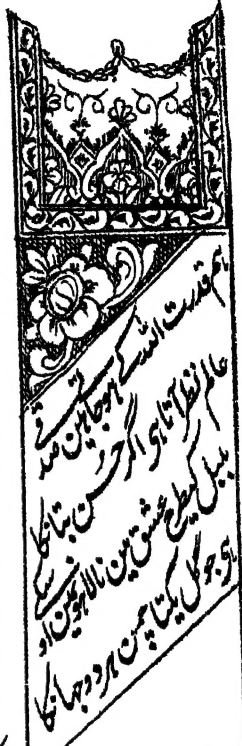 ہم قدرت اللہ کے ہو جاہین صدقے
عالم نظر آتا ہی اگر حسن بتانکا
بلبل کیطرح عشق مین نالاہون مین اوسکے
ہی جو گل یکتا چمن ہر دو جہانکا